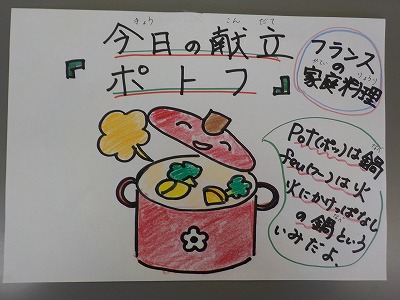 今日の献立
きょう こんだて
『ポトフ』
フランス
の
家庭料理
かてい りょうり
Pot(ポッ)は鍋
なべ
feu(フー)は火
火にかけっぱなし
の鍋という
なべ
いみだよ、